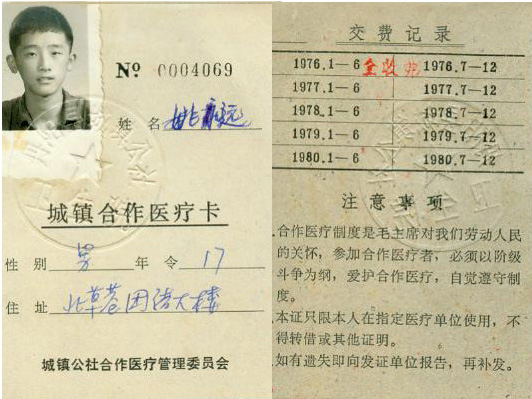 No 0004069
姓 名 姚永远
城镇合作医疗卡
性 别 男 年 令 17
住 址 北草巷团结大楼
城镇公社合作医疗管理委员会
交费记录
1976.1—6 全收 1976.7—12
1977.1—6 1977.7—12
1978.1—6 1978.7—12
1979.1—6 1979.7—12
1980.1—6 1980.7—12
注意事项
合作医疗制度是毛主席对我们劳动人民
的关怀，参加合作医疗者，必须以阶级
斗争为纲，爱护合作医疗，自觉遵守制
度。
本证只限本人在指定医疗单位使用，不
得转借或其他证明。
如有遗失即向发证单位报告，再补发。